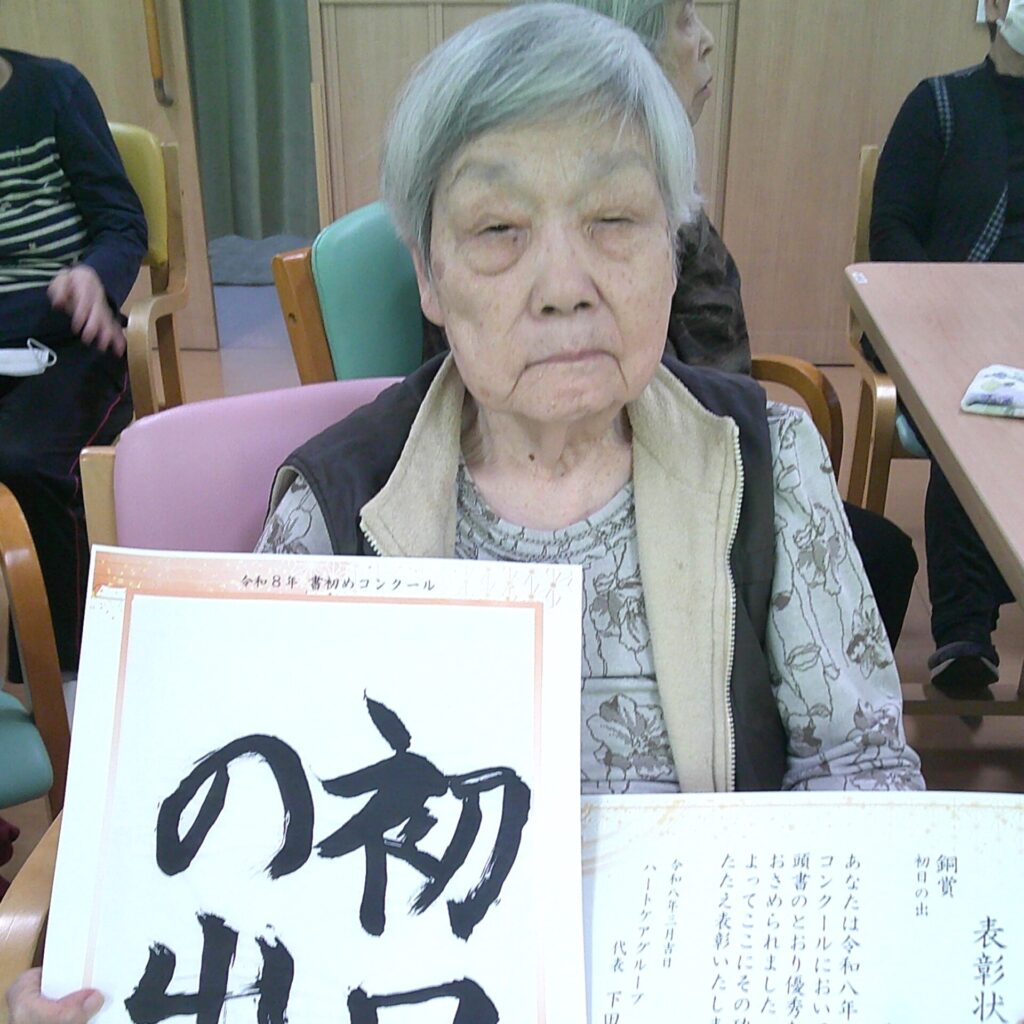 令和8年 書初めコンクール
初日
の出
表彰状
銅賞
初日の出
あなたは令和八年
コンクールにおい
頭書のとおり優秀
おさめられました
よってここにその
たたえ表彰いたしま
令和八年三月吉日
ハートケアグループ
代表 下田